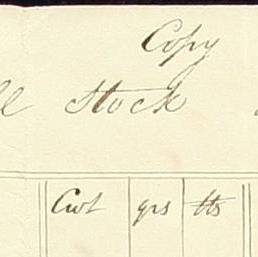 Copy
Stock
Cwt qrs lbs